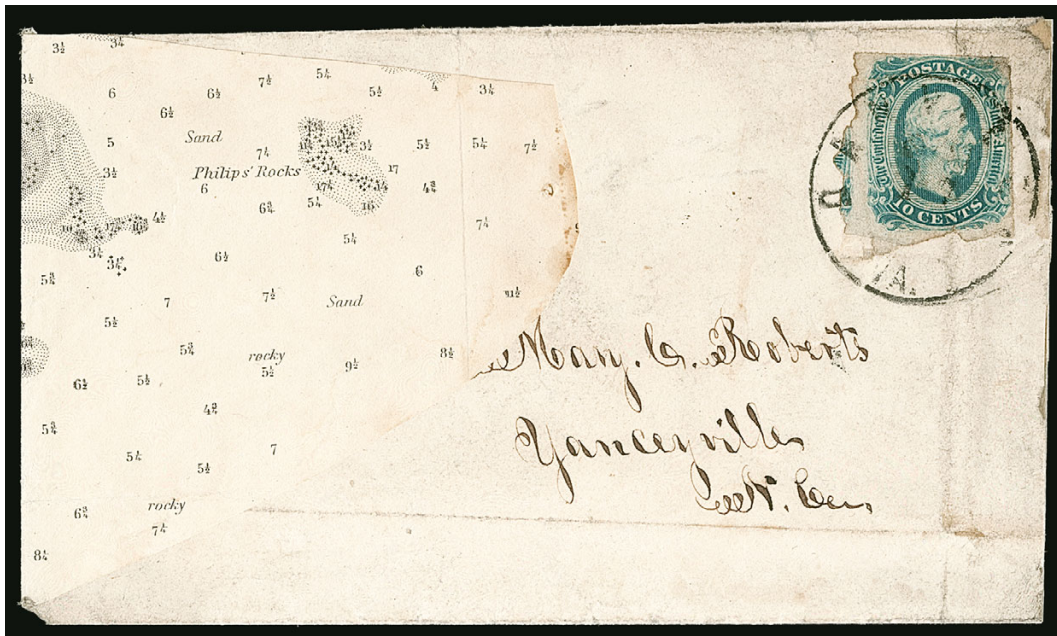 3½ 3¼
3½ 6 6½ 7½ 5¼ 5½ 4 3¼
6½
5 Sand 7¼ 3½ 5½ 5¼ 7½
3½ Philips' Rocks 17
6 17¼ 14 4¾
4½ 6¾ 5¼ 16 7¼
16 17 16
3¼ 5¼
3¼ 6½ 6
5¾ 7 7½ Sand 11½
5½
5¾ rocky 8½
5½ 9½
6½ 5½
4¾
5¾ 7
5¼ 5½
6¾ rocky
7¼
8¼
POSTAGE
The Confederate States of America
10 CENTS
VA.
Mary. C. Roberts
Yanceyville
N. Ca.